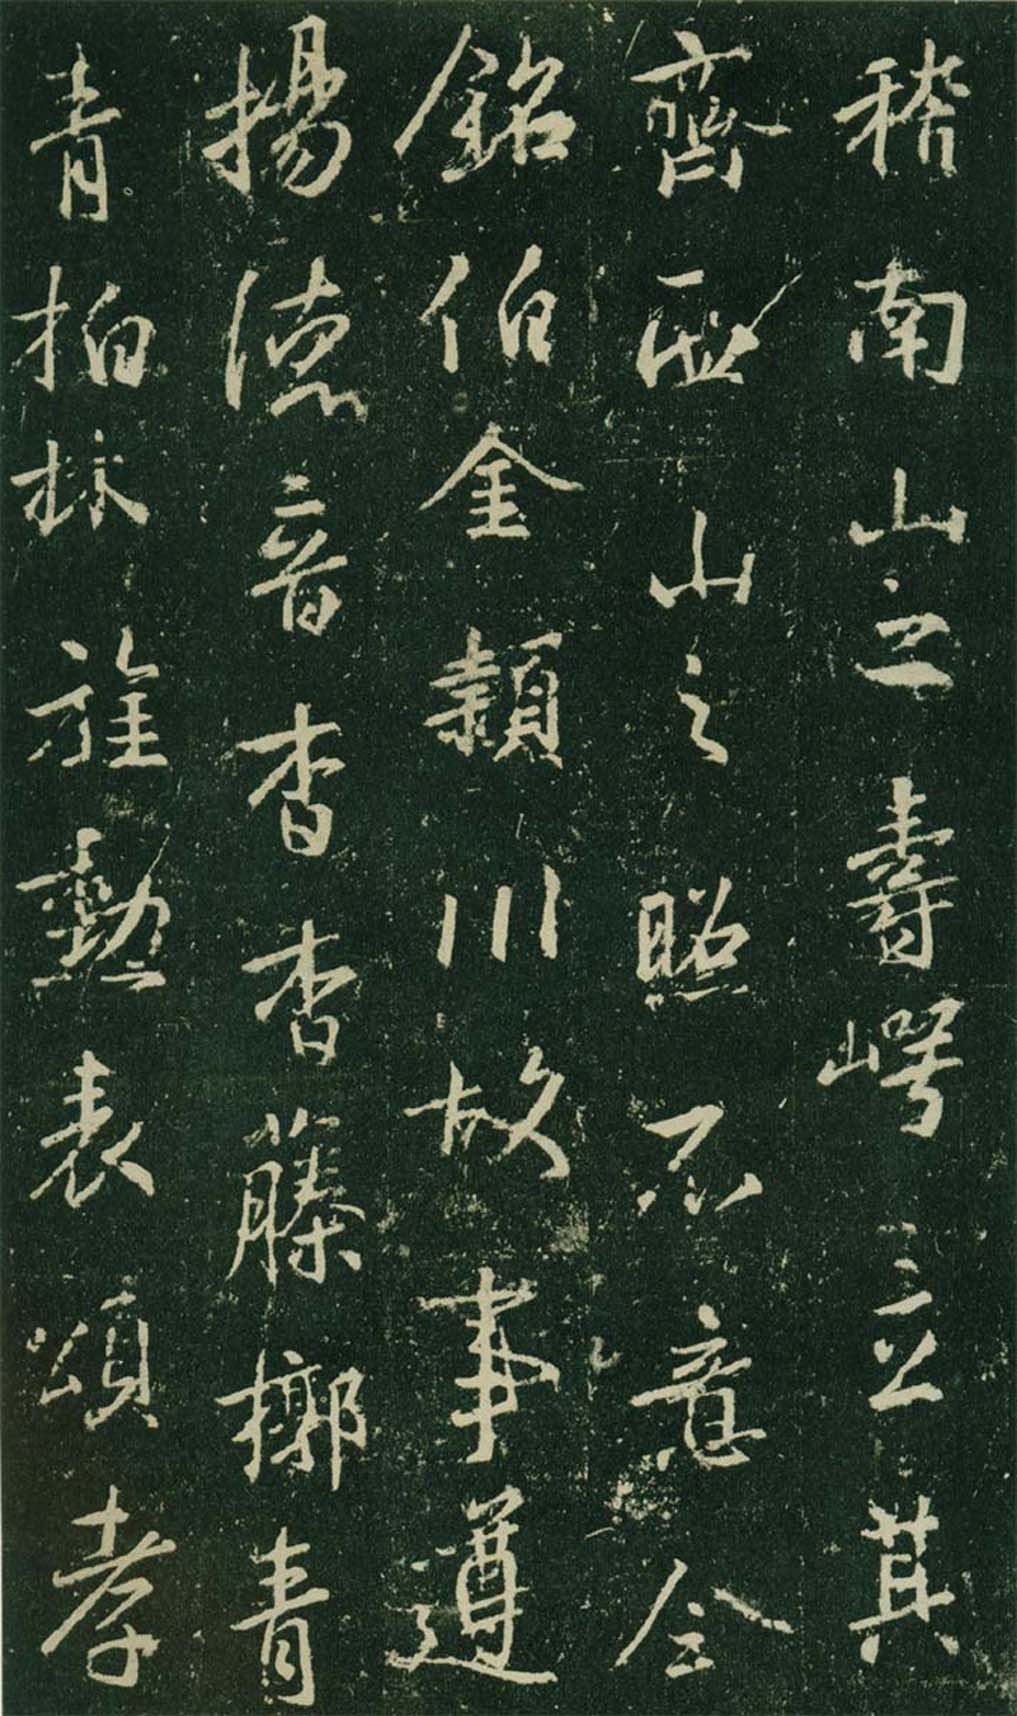 稽南山壽崿立其
齊山之照不意令
銘伯金頴川故事遵
揚德音杳杳藤槨青
青柏林旌勳表頌孝